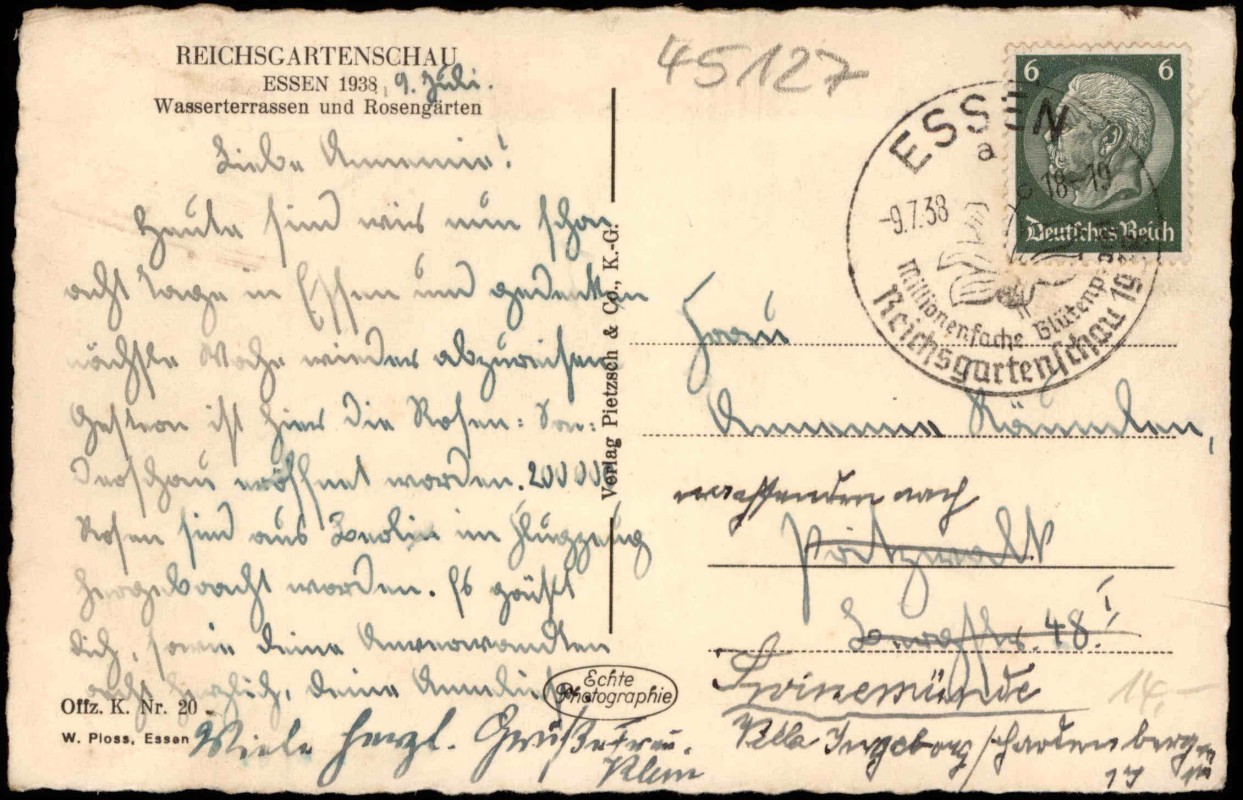 REICHSGARTENSCHAU
ESSEN 1938, 9. Juli.
Wasserterrassen und Rosengärten
Liebe
Heute sind wir nun schon
acht Tage in Essen und gedenken
nächste Woche wieder abzureisen
Gestern ist hier die Rosen: Son-
derschau eröffnet worden. 200 000
Rosen sind aus Berlin im Flugzeug
hergebracht worden. Es grüßt
dich, sowie deine Anverwandten
recht herzlich, deine
Viele herzl. Grüße Frau
Offz. K. Nr. 20
W. Ploss, Essen
Verlag Pietzsch & Co., K.-G.
Echte
Photographie
45127
6 6
Deutsches Reich
ESSEN
a
-9.7.38 18-19
Millionenfache
Reichsgartenschau 19
Frau
nach
Pritzwalk
48 I
Swinemünde
Villa Ingeborg
17
14,-